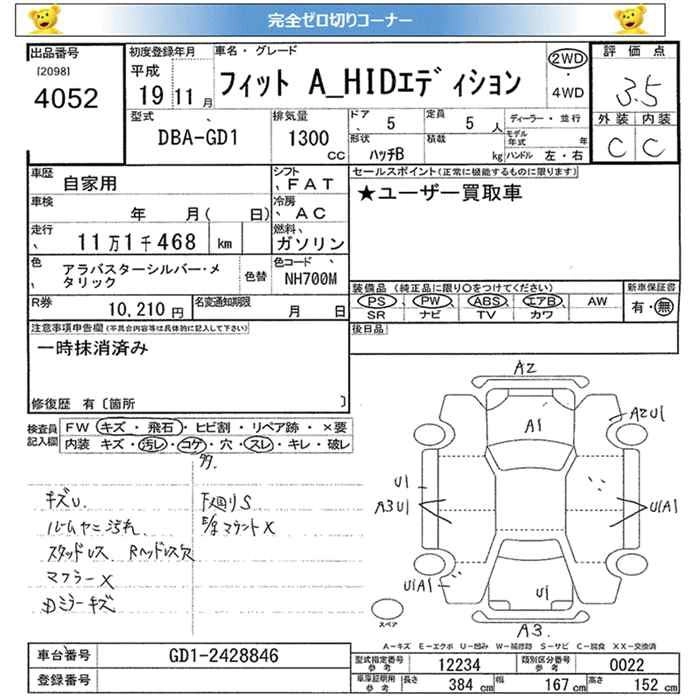 完全ゼロ切りコーナー
出品番号
[2098]
4052
初度登録年月
平成
19年 11月
車名・グレード
フィット A_HIDエディション
2WD
・
4WD
評価点
3.5
外装 内装
C C
型式
DBA-GD1
排気量
1300
CC
ドア 5
定員 5人
ディーラー・並行
形状
ハッチB
積載 kg
モデル年式 年
ハンドル 左・右
車歴 自家用
シフト FAT
車検 年 月( 日)
冷房 AC
走行 11万1千468 km
燃料 ガソリン
色 アラバスターシルバー・メタリック
色替
色コード NH700M
R券 10,210円
名変通知期限 月 日
セールスポイント(正常に機能するものに限ります)
★ユーザー買取車
装備品 (純正品に限り○をつけてください)
PS PW ABS エアB AW
SR ナビ TV カワ
新車保証書
有・無
後日品
注意事項申告欄(不具合内容等は具体的に記入して下さい)
一時抹消済み
修復歴 有〔箇所 〕
検査員記入欄
FW キズ・飛石・ヒビ割・リペア跡・×要
内装 キズ・汚レ・コゲ・穴・スレ・キレ・破レ
キズU.
ルームヤニ汚れ
スタッドレス Rヘッドレス欠
マフラーX
Dミラーキズ
下廻りS
マウントX
A2
A1
A2U1
U1
A3U1
U1A1
U1A1
U1
A3
スペア
A－キズ E－エクボ U－凹み W－補修跡 S－サビ C－腐食 XX－交換済
車台番号 GD1-2428846
登録番号
型式指定番号参考 12234
類別区分番号参考 0022
車庫証明用参考 長さ 384cm 幅 167cm 高さ 152cm